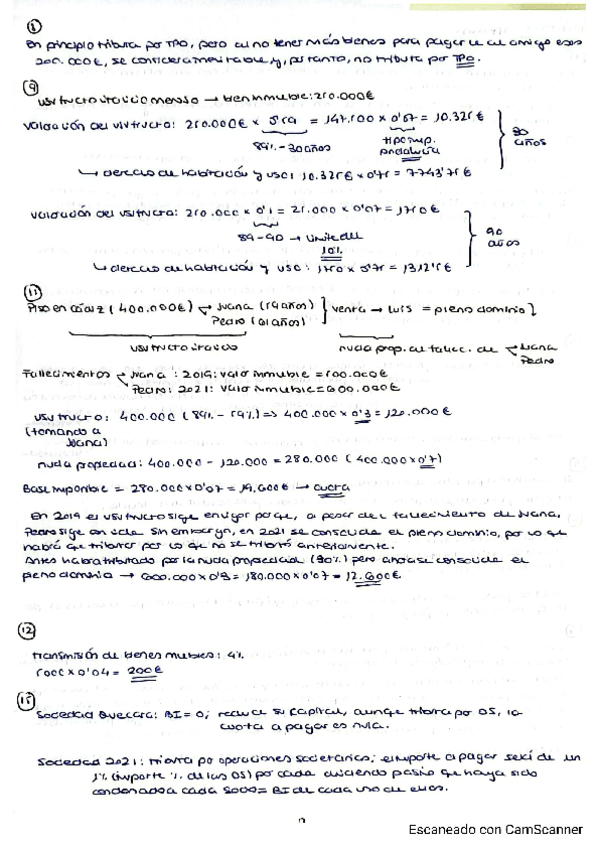 ①
En principio tributa por TPO, pero al no tener más bienes para pagarle al amigo esos
200.000€, se considera inevitable y, por tanto, no tributa por TPO.
⑨
usufructo vitalicio → bien inmueble: 210.000€
Valoración del usufructo: 210.000€ × = 147.100 × 0'07 = 10.325€
89% - 30 años
tipo imp.
Andalucía
30
años
↳ derecho de habitación y uso: 10.325€ × 0'75 = 7743'75€
Valoración del usufructo: 210.000 × 0'1 = 21.000 × 0'07 = 1.750€
89-90 → límite del
10%
90
años
↳ derecho de habitación y uso: 1750 × 0'75 = 1312'5€
⑪
Piso en Cádiz (400.000€) → Juana (59 años) venta → Luis = pleno dominio
Pedro (61 años)
usufructo vitalicio
nuda prop. de fallec. de Juana
Pedro
Fallecimientos → Juana: 2019: valor inmueble = 500.000€
Pedro: 2021: valor inmueble = 600.000€
usufructo: 400.000 (89% - 59%) => 400.000 × 0'3 = 120.000€
(tomando a
Juana)
nuda propiedad: 400.000 - 120.000 = 280.000 (400.000 × 0'7)
Base imponible = 280.000 × 0'07 = 19.600€ → cuota
En 2019 el usufructo sigue en vigor porque, a pesar del fallecimiento de Juana,
Pedro sigue con vida. Sin embargo, en 2021 se consolida el pleno dominio, por lo que
habrá que tributar por lo que no se tributó anteriormente.
Antes había tributado por la nuda propiedad (70%) pero ahora se consolida el
pleno dominio → 600.000 × 0'3 = 180.000 × 0'07 = 12.600€
⑫
transmisión de bienes muebles: 4%
5000 × 0'04 = 200€
⑮
Sociedad : BI = 0; reduce su capital, aunque tributa por OS, la
cuota a pagar es nula.
Sociedad 2021: tributa por operaciones societarias; el importe a pagar será de un
1% (importe % de las OS) por cada pasivo que haya sido
condonado a cada socio = BI de cada uno de ellos.
Escaneado con CamScanner